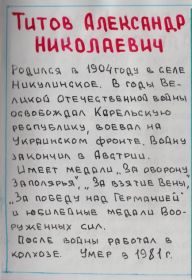 Титов Александр
Николаевич
Родился в 1904 году в селе
Никулинское. В годы Ве-
ликой Отечественной войны
освобождал Карельскую
республику, воевал на
Украинском фронте. Войну
закончил в Австрии.
Имеет медали „За оборону
Заполярья", „За взятие Вены",
„За победу над Германией"
и юбилейные медали Воо-
руженных сил.
После войны работал в
колхозе. Умер в 1981 г.